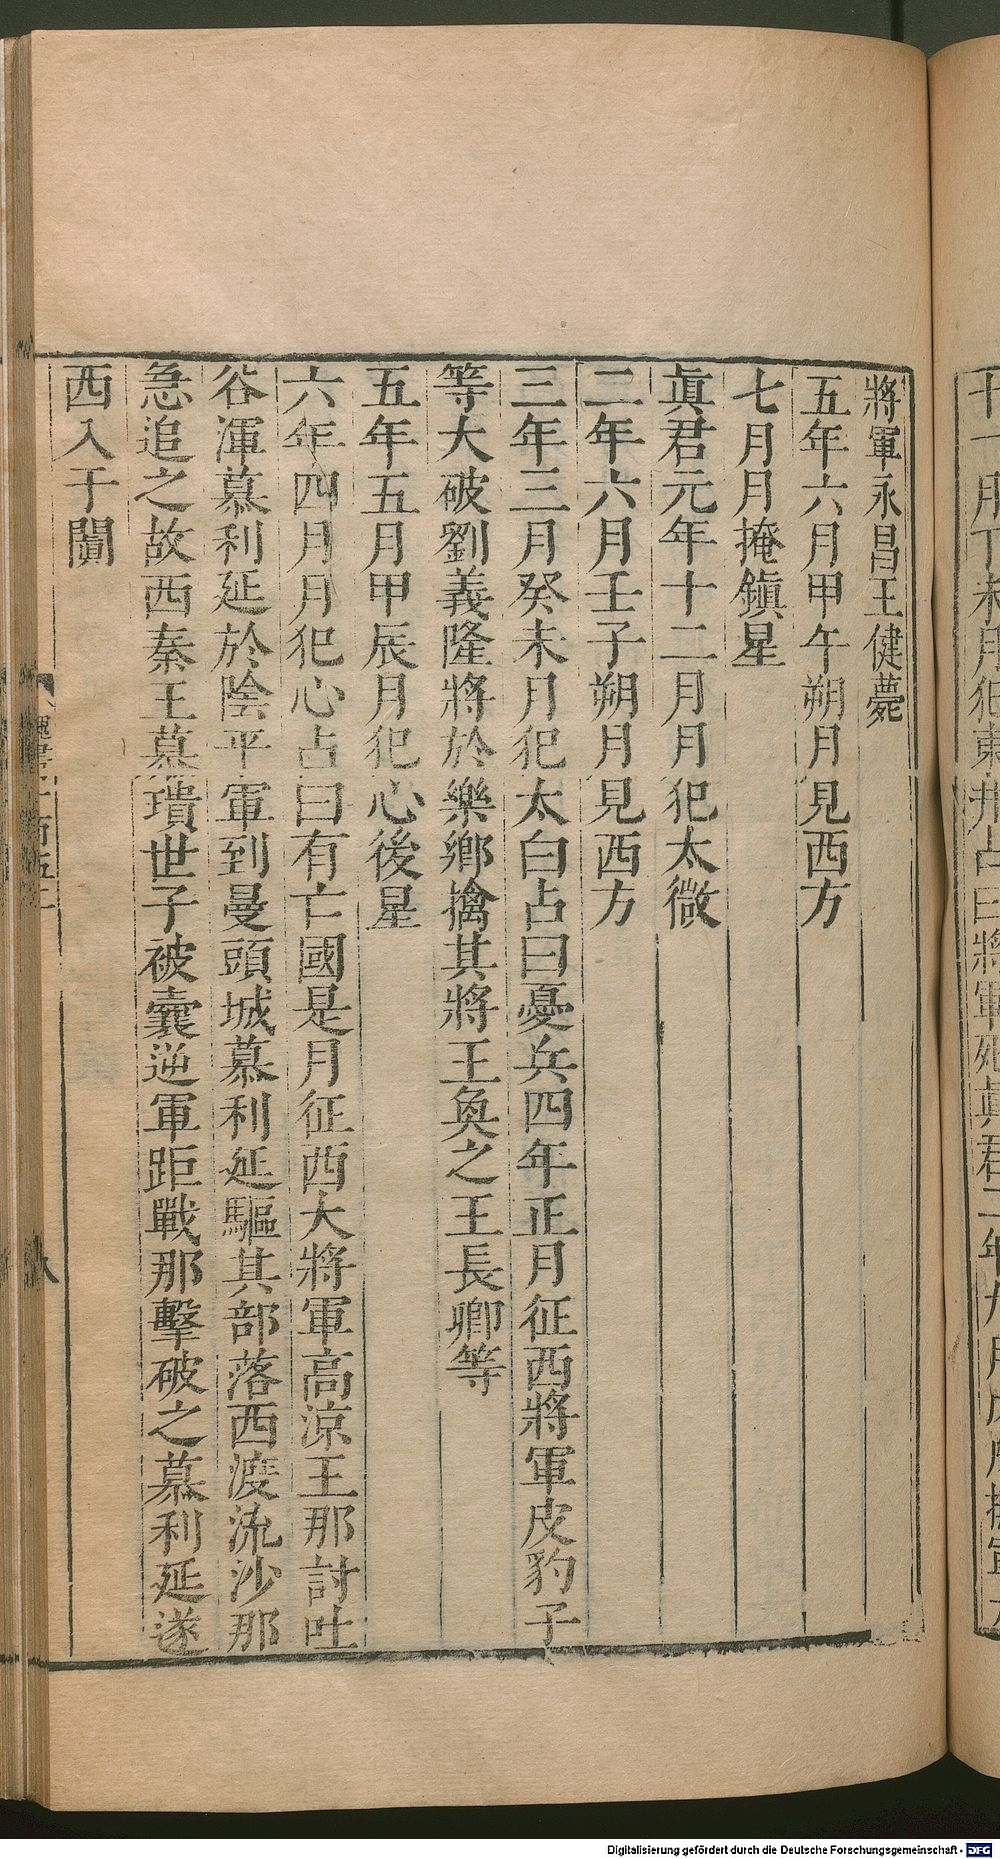 將軍永昌王健薨
五年六月甲午朔月見西方
七月月掩鎮星
眞君元年十二月月犯太微
二年六月壬子朔月見西方
三年三月癸未月犯太白占曰憂兵四年正月征西將軍皮豹子
等大破劉義隆將於樂鄉擒其將王奐之王長卿等
五年五月甲辰月犯心後星
六年四月月犯心占曰有亡國是月征西大將軍高涼王那討吐
谷渾慕利延於陰平軍到曼頭城慕利延驅其部落西渡流沙那
急追之故西秦王慕璝世子被囊逆軍距戰那擊破之慕利延遂
西入于闐
Digitalisierung gefördert durch die Deutsche Forschungsgemeinschaft - DFG